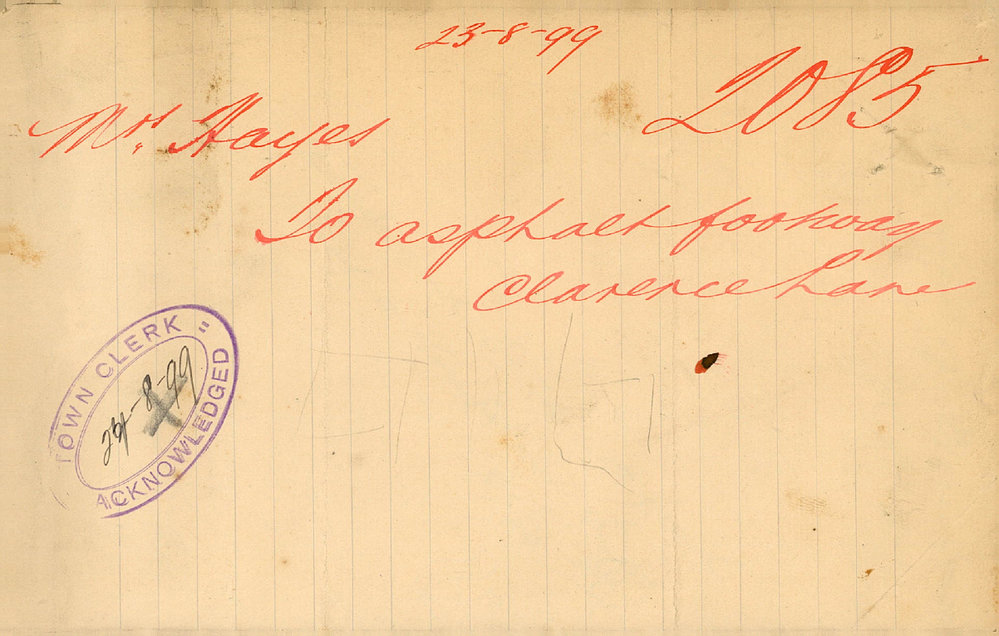 23-8-99
2085
Mrs. Hayes
To asphalt footway
Clarence Lane
TOWN CLERK
-8-99
ACKNOWLEDGED